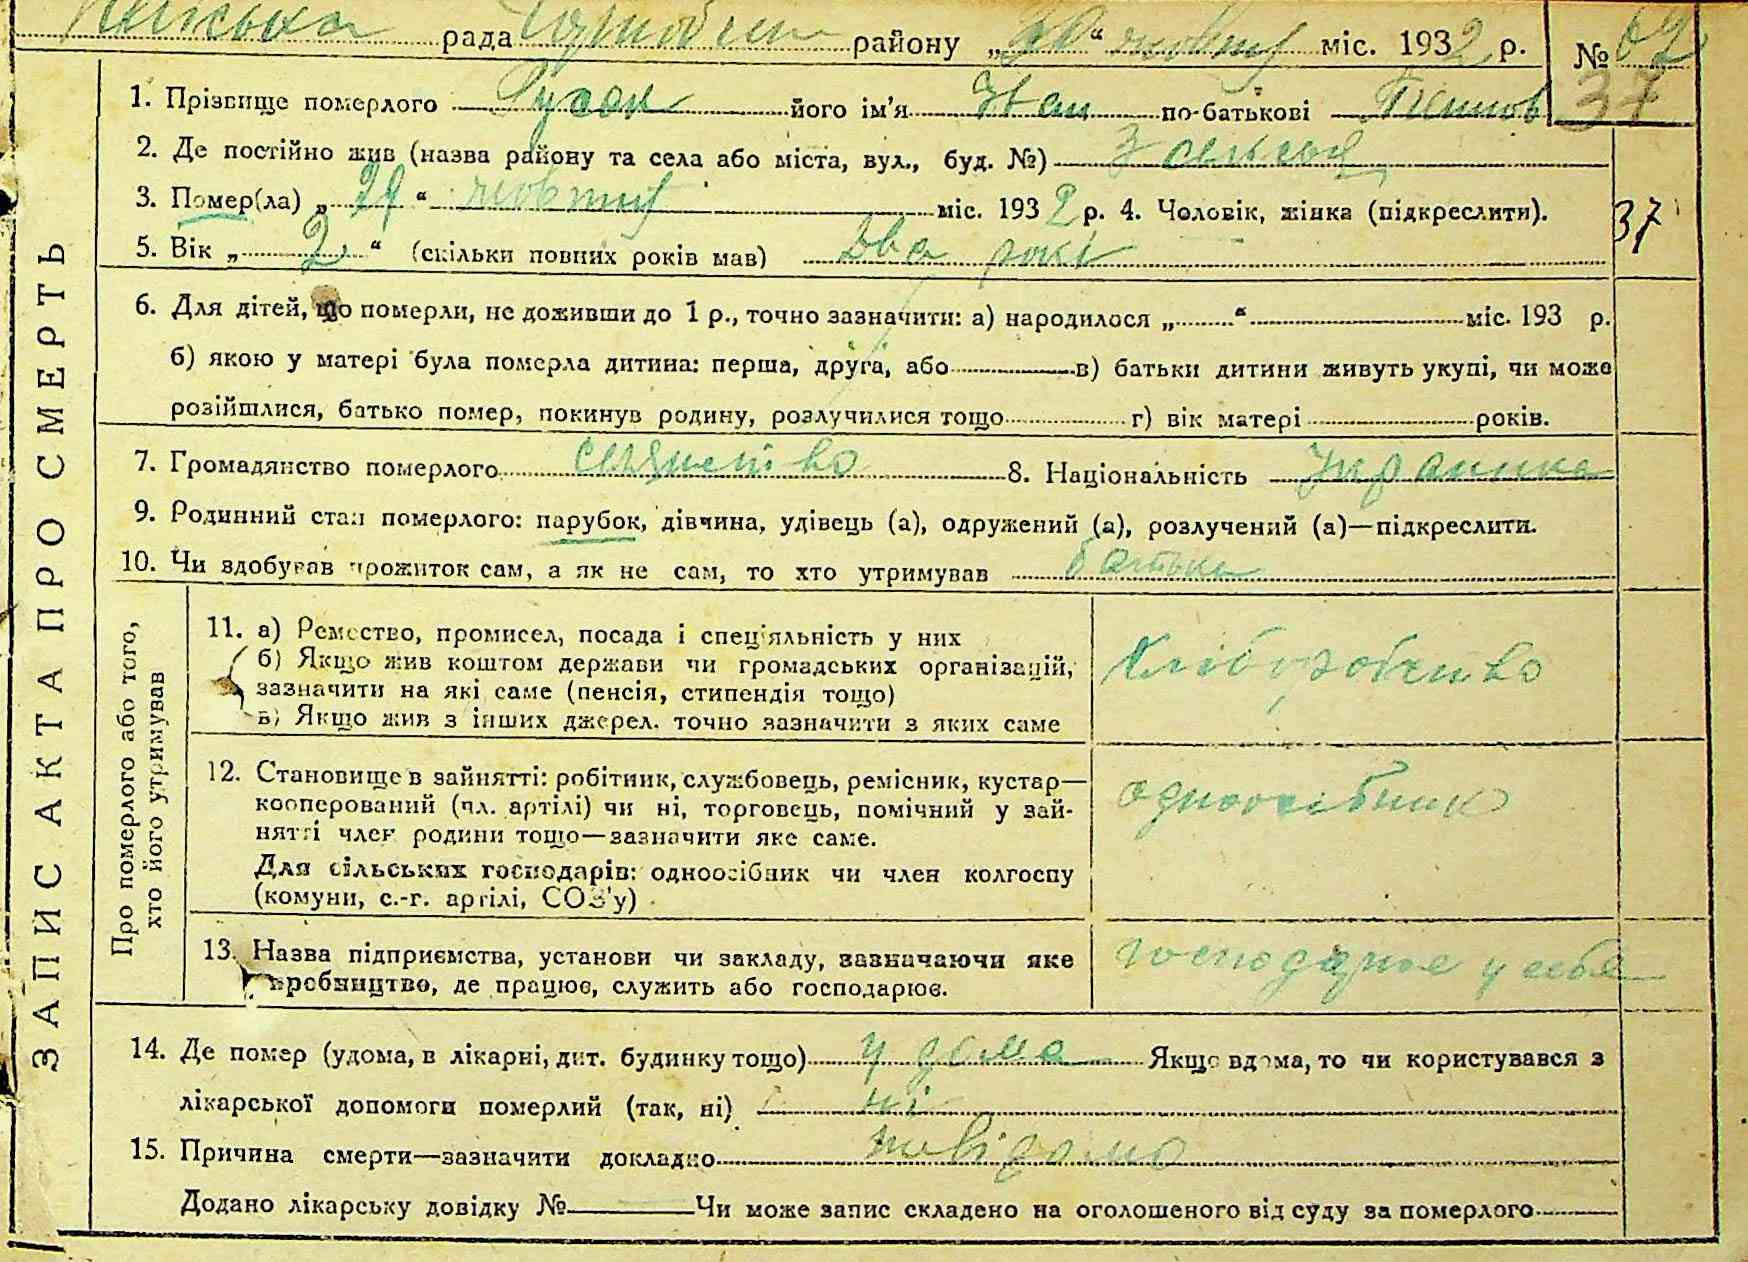 рада району „ “ міс. 1932 р. №
37
1. Прізвище померлого Русак його ім'я Іван по-батькові
2. Де постійно жив (назва району та села або міста, вул., буд. №)
3. Помер(ла) „29“ жовтня міс. 1932 р. 4. Чоловік, жінка (підкреслити).
37
5. Вік „2“ (скільки повних років мав) два рокі
6. Для дітей, що померли, не доживши до 1 р., точно зазначити: а) народилося „ “ міс. 193 р.
б) якою у матері була померла дитина: перша, друга, або в) батьки дитини живуть укупі, чи може
розійшлися, батько помер, покинув родину, розлучилися тощо г) вік матері років.
7. Громадянство померлого селянство 8. Національність
9. Родинний стан померлого: парубок, дівчина, удівець (а), одружений (а), розлучений (а)—підкреслити.
10. Чи здобував прожиток сам, а як не сам, то хто утримував батько
ЗАПИС АКТА ПРО СМЕРТЬ
Про померлого або того,
хто його утримував
11. а) Ремество, промисел, посада і спеціяльність у них
б) Якщо жив коштом держави чи громадських організацій,
зазначити на які саме (пенсія, стипендія тощо)
в) Якщо жив з інших джерел, точно зазначити з яких саме
хліборобство
12. Становище в зайнятті: робітник, службовець, ремісник, кустар—
кооперований (чл. артілі) чи ні, торговець, помічний у зай-
нятті член родини тощо—зазначити яке саме.
Для сільських господарів: одноосібник чи член колгоспу
(комуни, с.-г. артілі, СОЗ'у)
одноосібник
13. Назва підприємства, установи чи закладу, зазначаючи яке
виробництво, де працює, служить або господарює.
господарює у себе
14. Де помер (удома, в лікарні, дит. будинку тощо) у дома Якщо вдома, то чи користувався з
лікарської допомоги померлий (так, ні) ні
15. Причина смерти—зазначити докладно
Додано лікарську довідку № Чи може запис складено на оголошеного від суду за померлого